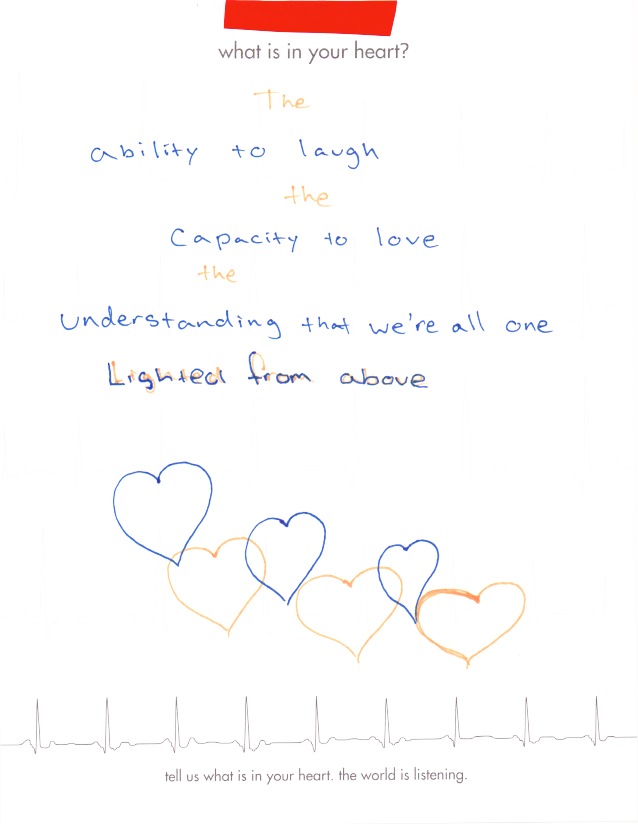 what is in your heart?
The
ability to laugh
the
Capacity to love
the
Understanding that we're all one
Lighted from above
tell us what is in your heart. the world is listening.